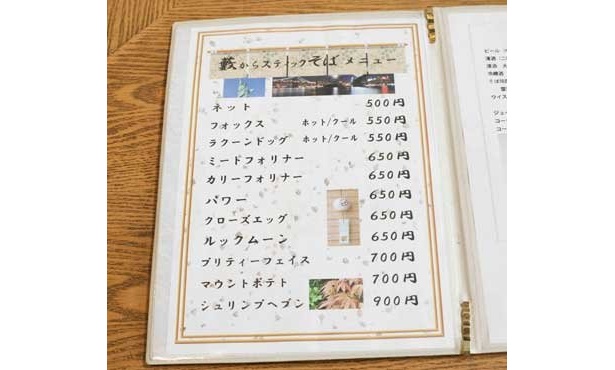 藪からスティックそば メニュー
ネット 500円
フォックス ホット/クール 550円
ラクーンドッグ ホット/クール 550円
ミードフォリナー 650円
カリーフォリナー 650円
パワー 650円
クローズエッグ 650円
ルックムーン 650円
プリティーフェイス 700円
マウントポテト 700円
シュリンプヘブン 900円
ビール
清酒
清酒
冷醸酒
そば焼酎
ウイス
ジュー
コー
コー